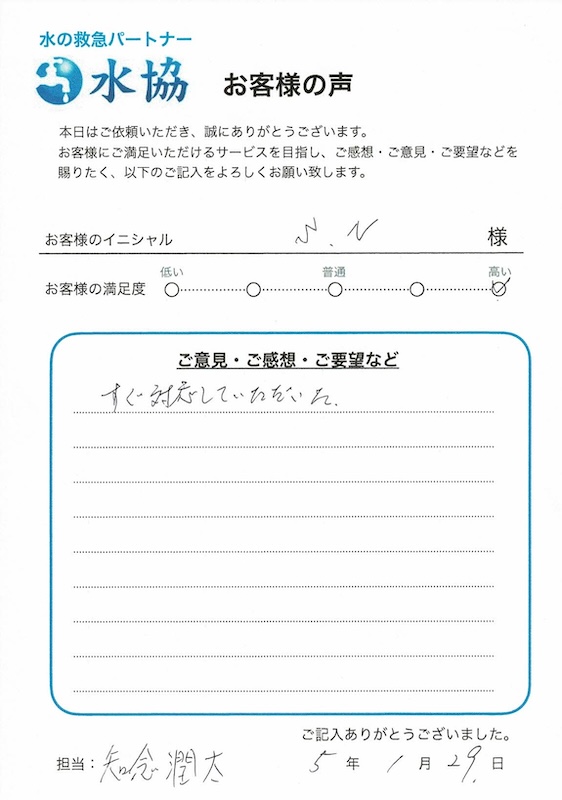 水の救急パートナー
水協 お客様の声
本日はご依頼いただき、誠にありがとうございます。
お客様にご満足いただけるサービスを目指し、ご感想・ご意見・ご要望などを
賜りたく、以下のご記入をよろしくお願い致します。
お客様のイニシャル S.N 様
低い 普通 高い
お客様の満足度
ご意見・ご感想・ご要望など
すぐ対応していただいた.
ご記入ありがとうございました。
担当：知念潤太 5年1月29.日